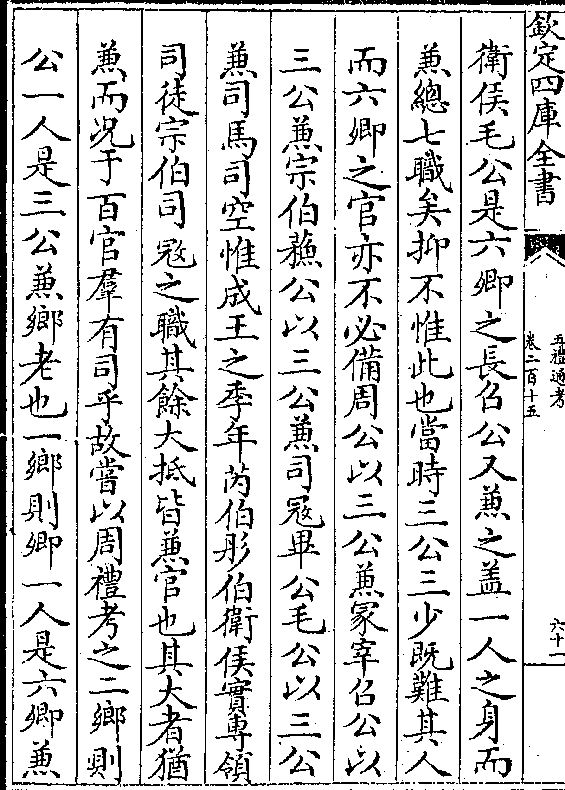 欽定四庫全書
五禮通考
卷二百十五
六十一
衛侯毛公是六卿之長召公又兼之蓋一人之身而
兼總七職矣抑不惟此也當時三公三少既難其人
而六卿之官亦不必備周公以三公兼冢宰召公以
三公兼宗伯蘇公以三公兼司寇畢公毛公以三公
兼司馬司空惟成王之季年芮伯彤伯衛侯實專領
司徒宗伯司寇之職其餘大抵皆兼官也其大者猶
兼而况于百官羣有司乎故嘗以周禮考之二鄉則
公一人是三公兼鄉老也一鄉則卿一人是六卿兼